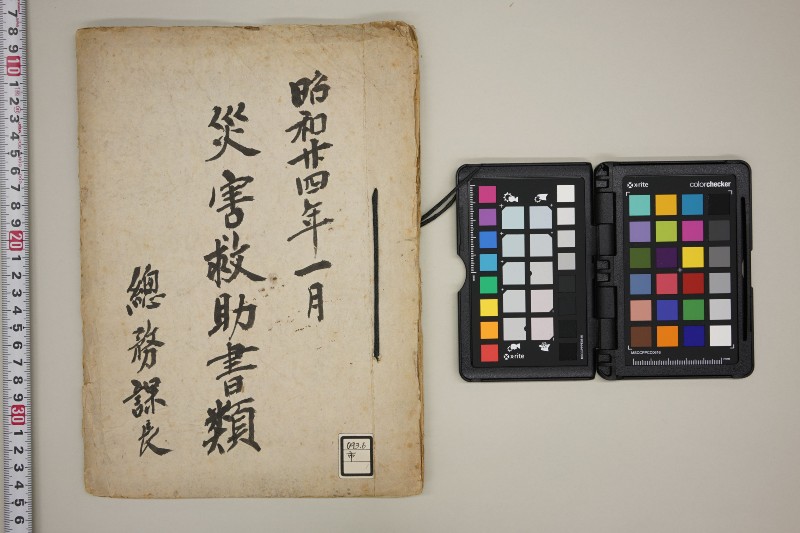 昭和廿四年一月
災害救助書類
總務課長
093.6
市
x-rite
x-rite
colorchecker